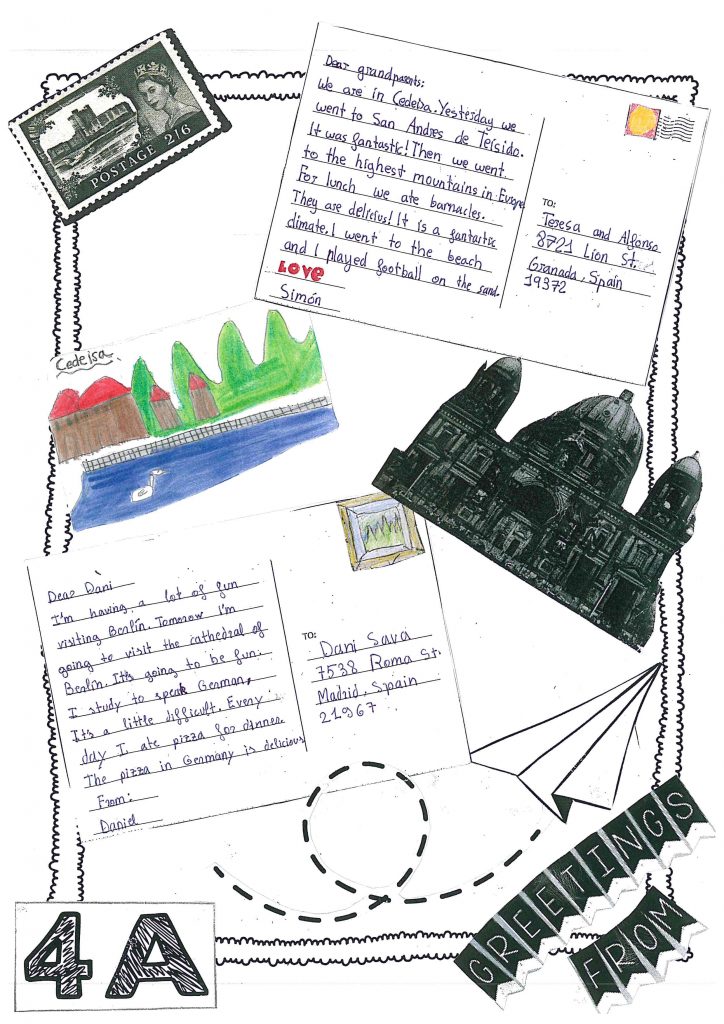 POSTAGE 2/6
Dear grandparents:
We are in Cedeira. Yesterday we
went to San Andres de Teísido.
It was fantastic! Then we went
to the highest mountains in Europe
For lunch we ate barnacles.
They are delicius! It is a fantastic
climate. I went to the beach
and I played football on the sand.
LOVE
Simón
TO:
Teresa and Alfonso
8721 Lion St.
Granada, Spain
19372
Cedeisa
Dear Dani
I'm having a lot of fun
visiting Berlín. Tomorow I'm
going to visit the cathedral of
Berlín. It's going to be fun.
I study to speak German,
It's a little difficult. Every
day I ate pizza for dinner.
The pizza in Germany is delicious
From:
Daniel
TO:
Dani Sava
7538 Roma St.
Madrid, Spain
21967
GREETINGS
FROM
4A